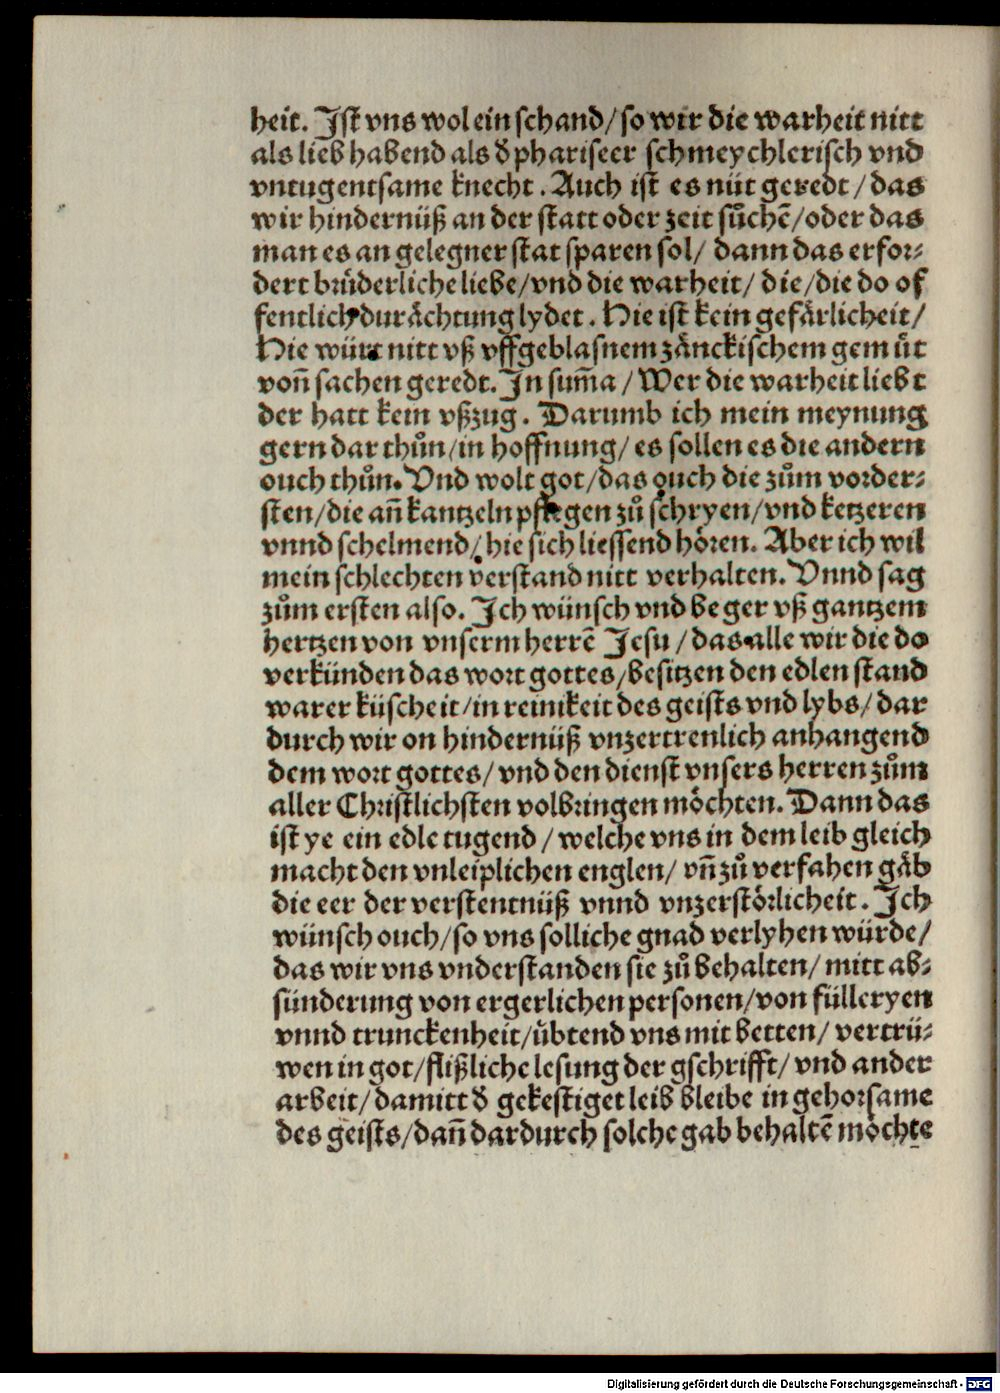 heit. Ist vns wol ein schand/so wir die warheit nitt
als lieb habend als đ phariseer schmeychlerisch vnd
vntugentsame knecht. Auch ist es nüt geredt/das
wir hindernüß an der statt oder zeit sůchē/oder das
man es an gelegner stat sparen sol/ dann das erfor⸗
dert brůderliche liebe/vnd die warheit/ die/die do of
fentlich durächtung lydet. Hie ist kein gefärlicheit/
Hie würt nitt vß vffgeblasnem zänckischem gemůt
von̄ sachen geredt. In sum̄a/Wer die warheit liebt
der hatt kein vßzug. Darumb ich mein meynung
gern dar thůn/in hoffnung/ es sollen es die andern
ouch thůn. Vnd wolt got/das ouch die zům vorder⸗
sten/die an̄ kantzeln pflegen zů schryen/vnd ketzeren
vnnd schelmend/hie sich liessend hören. Aber ich wil
mein schlechten verstand nitt verhalten. Vnnd sag
zům ersten also. Ich wünsch vnd beger vß gantzem
hertzen von vnserm herrē Jesu/das alle wir die do
verkünden das wort gottes/besitzen den edlen stand
warer küscheit/in reinikeit des geists vnd lybs/dar
durch wir on hindernüß vnzertrenlich anhangend
dem wort gottes/vnd den dienst vnsers herren zům
aller Christlichsten volbringen möchten. Dann das
ist ye ein edle tugend/welche vns in dem leib gleich
macht den vnleiplichen englen/ vn̄ zů verfahen gäb
die eer der verstentnüß vnnd vnzerstörlicheit. Ich
wünsch ouch/so vns solliche gnad verlyhen würde/
das wir vns vnderstanden sie zů behalten/ mitt ab⸗
sünderung von ergerlichen personen/von fülleryen
vnnd trunckenheit/übtend vns mit betten/ vertrü⸗
wen in got/flißliche lesung der gschrifft/ vnd ander
arbeit/damitt đ gekestiget leib bleibe in gehorsame
des geists/dan̄ dardurch solche gab behaltē möchte
Digitalisierung gefördert durch die Deutsche Forschungsgemeinschaft - DFG